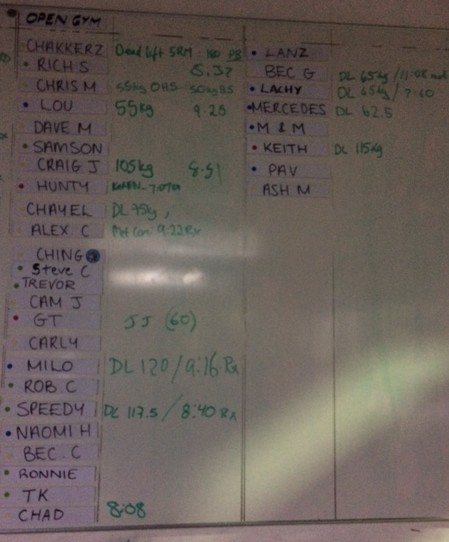 OPEN GYM
CHAKKERZ Dead lift 5RM: 110 PB
RICH S 5.37
CHRIS M 55kg OHS 50kg BS
LOU 55kg 9.20
DAVE M
SAMSON
CRAIG J 105kg 8.51
HUNTY
CHAYEL DL 75kg,
ALEX. C Met Con: 9:22 Rx
CHING
Steve C
TREVOR
CAM J
GT JJ (60)
CARLY
MILO DL 120/9:16 Rx
ROB. C
SPEEDY DL 117.5/8:40 Rx
NAOMI H
BEC. C
RONNIE
TK
CHAD 8:08
LANZ
BEC G DL 65kg/11:08
LACHY DL 65kg/7:40
MERCEDES DL 62.5
M & M
KEITH DL 115kg
PAV
ASH M